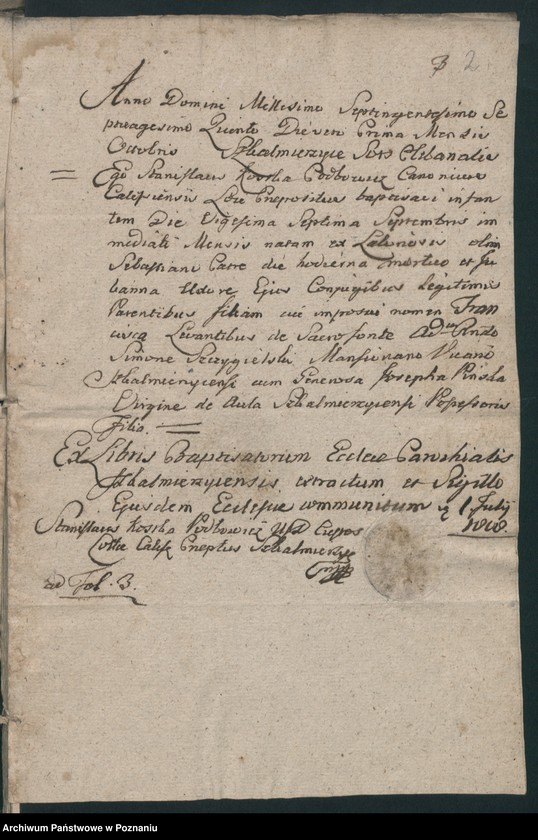 3 2
Anno Domini Millesimo Septingentesimo Se
ptuagesimo Quinto Die vero Prima Mensis
Octobris Skalmierzyce
Ego Stanislaus Kostka Podbowicz Canonicus
Calisiensis Loci Praepositus baptisavi infan
tem Die Vigesima Septima Septembris im
mediati Mensis natam ex Laboriosis olim
Sebastiano die hodierna mortuo et Ju
banna Udore Ejus Conjugibus legitimis
Parentibus filiam cui imposui nomen Fran
cisca Levantibus de Sacro fonte
Simone Szczygielski Mansionario Vicario
Skalmierzycensi cum Generosa Josepha
Virgine de Aula Skalmierzycensi Possessoris
filia.
Ex Libris Baptisatorum Ecclae Parochialis
Skalmierzycensis extractum et Sigillo
Ejusdem Ecclesiae communitum 1 Julij
1808.
Stanislaus Kostka Podbowicz
Praeptus Skalmierzyc
ad Fol. 3.
Archiwum Państwowe w Poznaniu